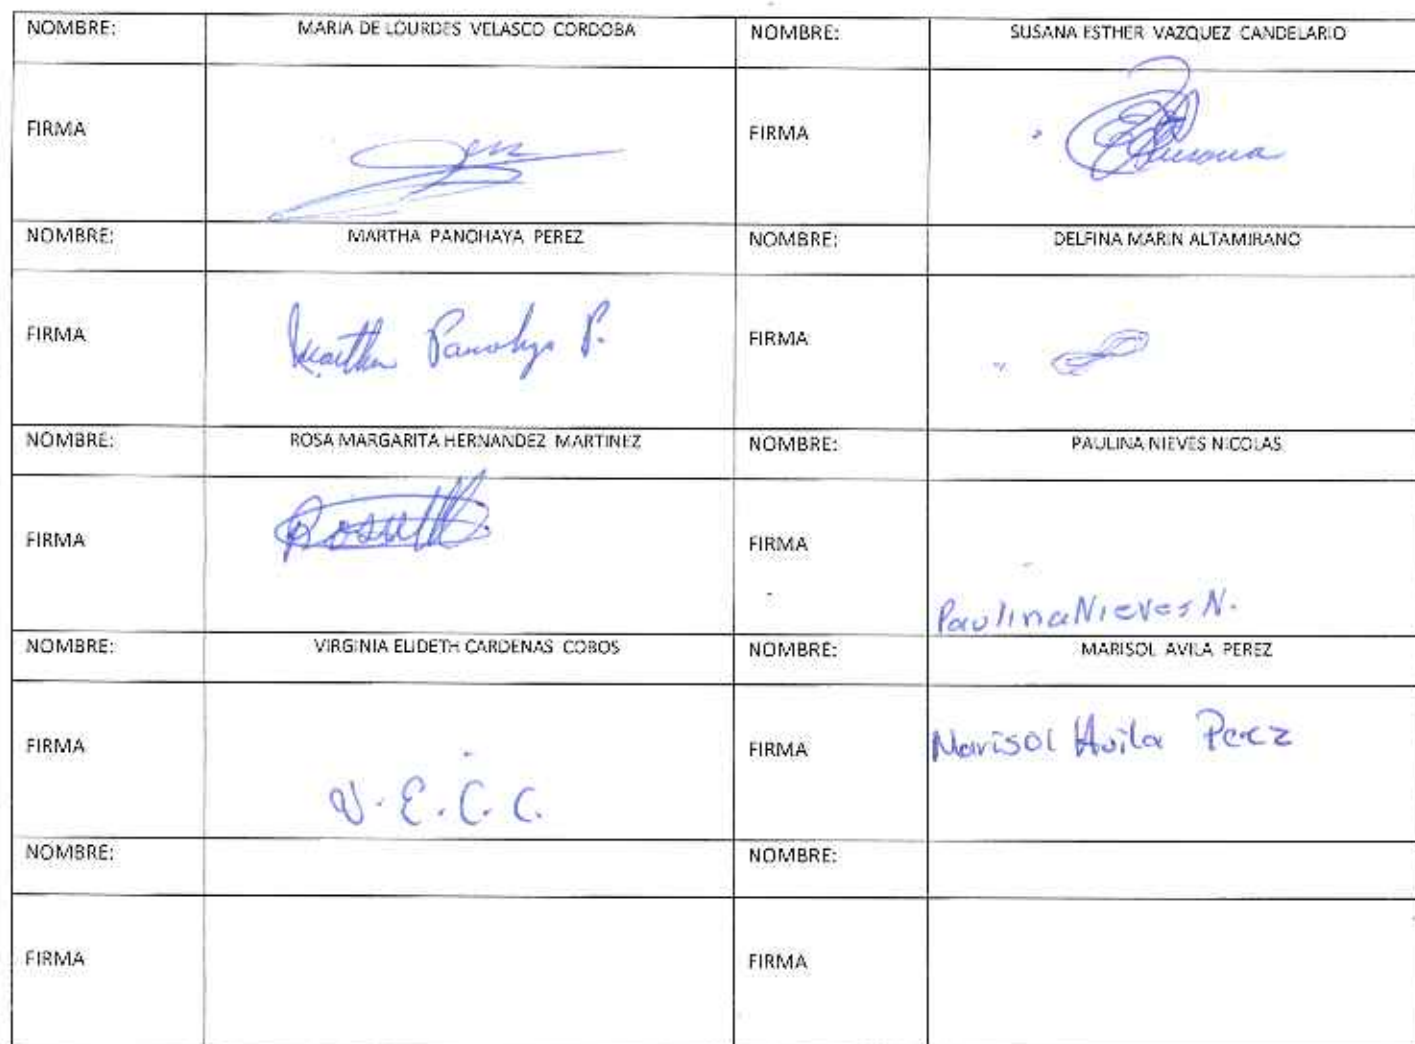 NOMBRE: MARIA DE LOURDES VELASCO CORDOBA NOMBRE: SUSANA ESTHER VAZQUEZ CANDELARIO
FIRMA FIRMA Susana
NOMBRE: MARTHA PANOHAYA PEREZ NOMBRE: DELFINA MARIN ALTAMIRANO
FIRMA Martha Panohya P. FIRMA
NOMBRE: ROSA MARGARITA HERNANDEZ MARTINEZ NOMBRE: PAULINA NIEVES NICOLAS
FIRMA FIRMA
Paulina Nieves N.
NOMBRE: VIRGINIA ELIDETH CARDENAS COBOS NOMBRE: MARISOL AVILA PEREZ
FIRMA FIRMA Marisol Avila Perez
V. E. C. C.
NOMBRE: NOMBRE:
FIRMA FIRMA